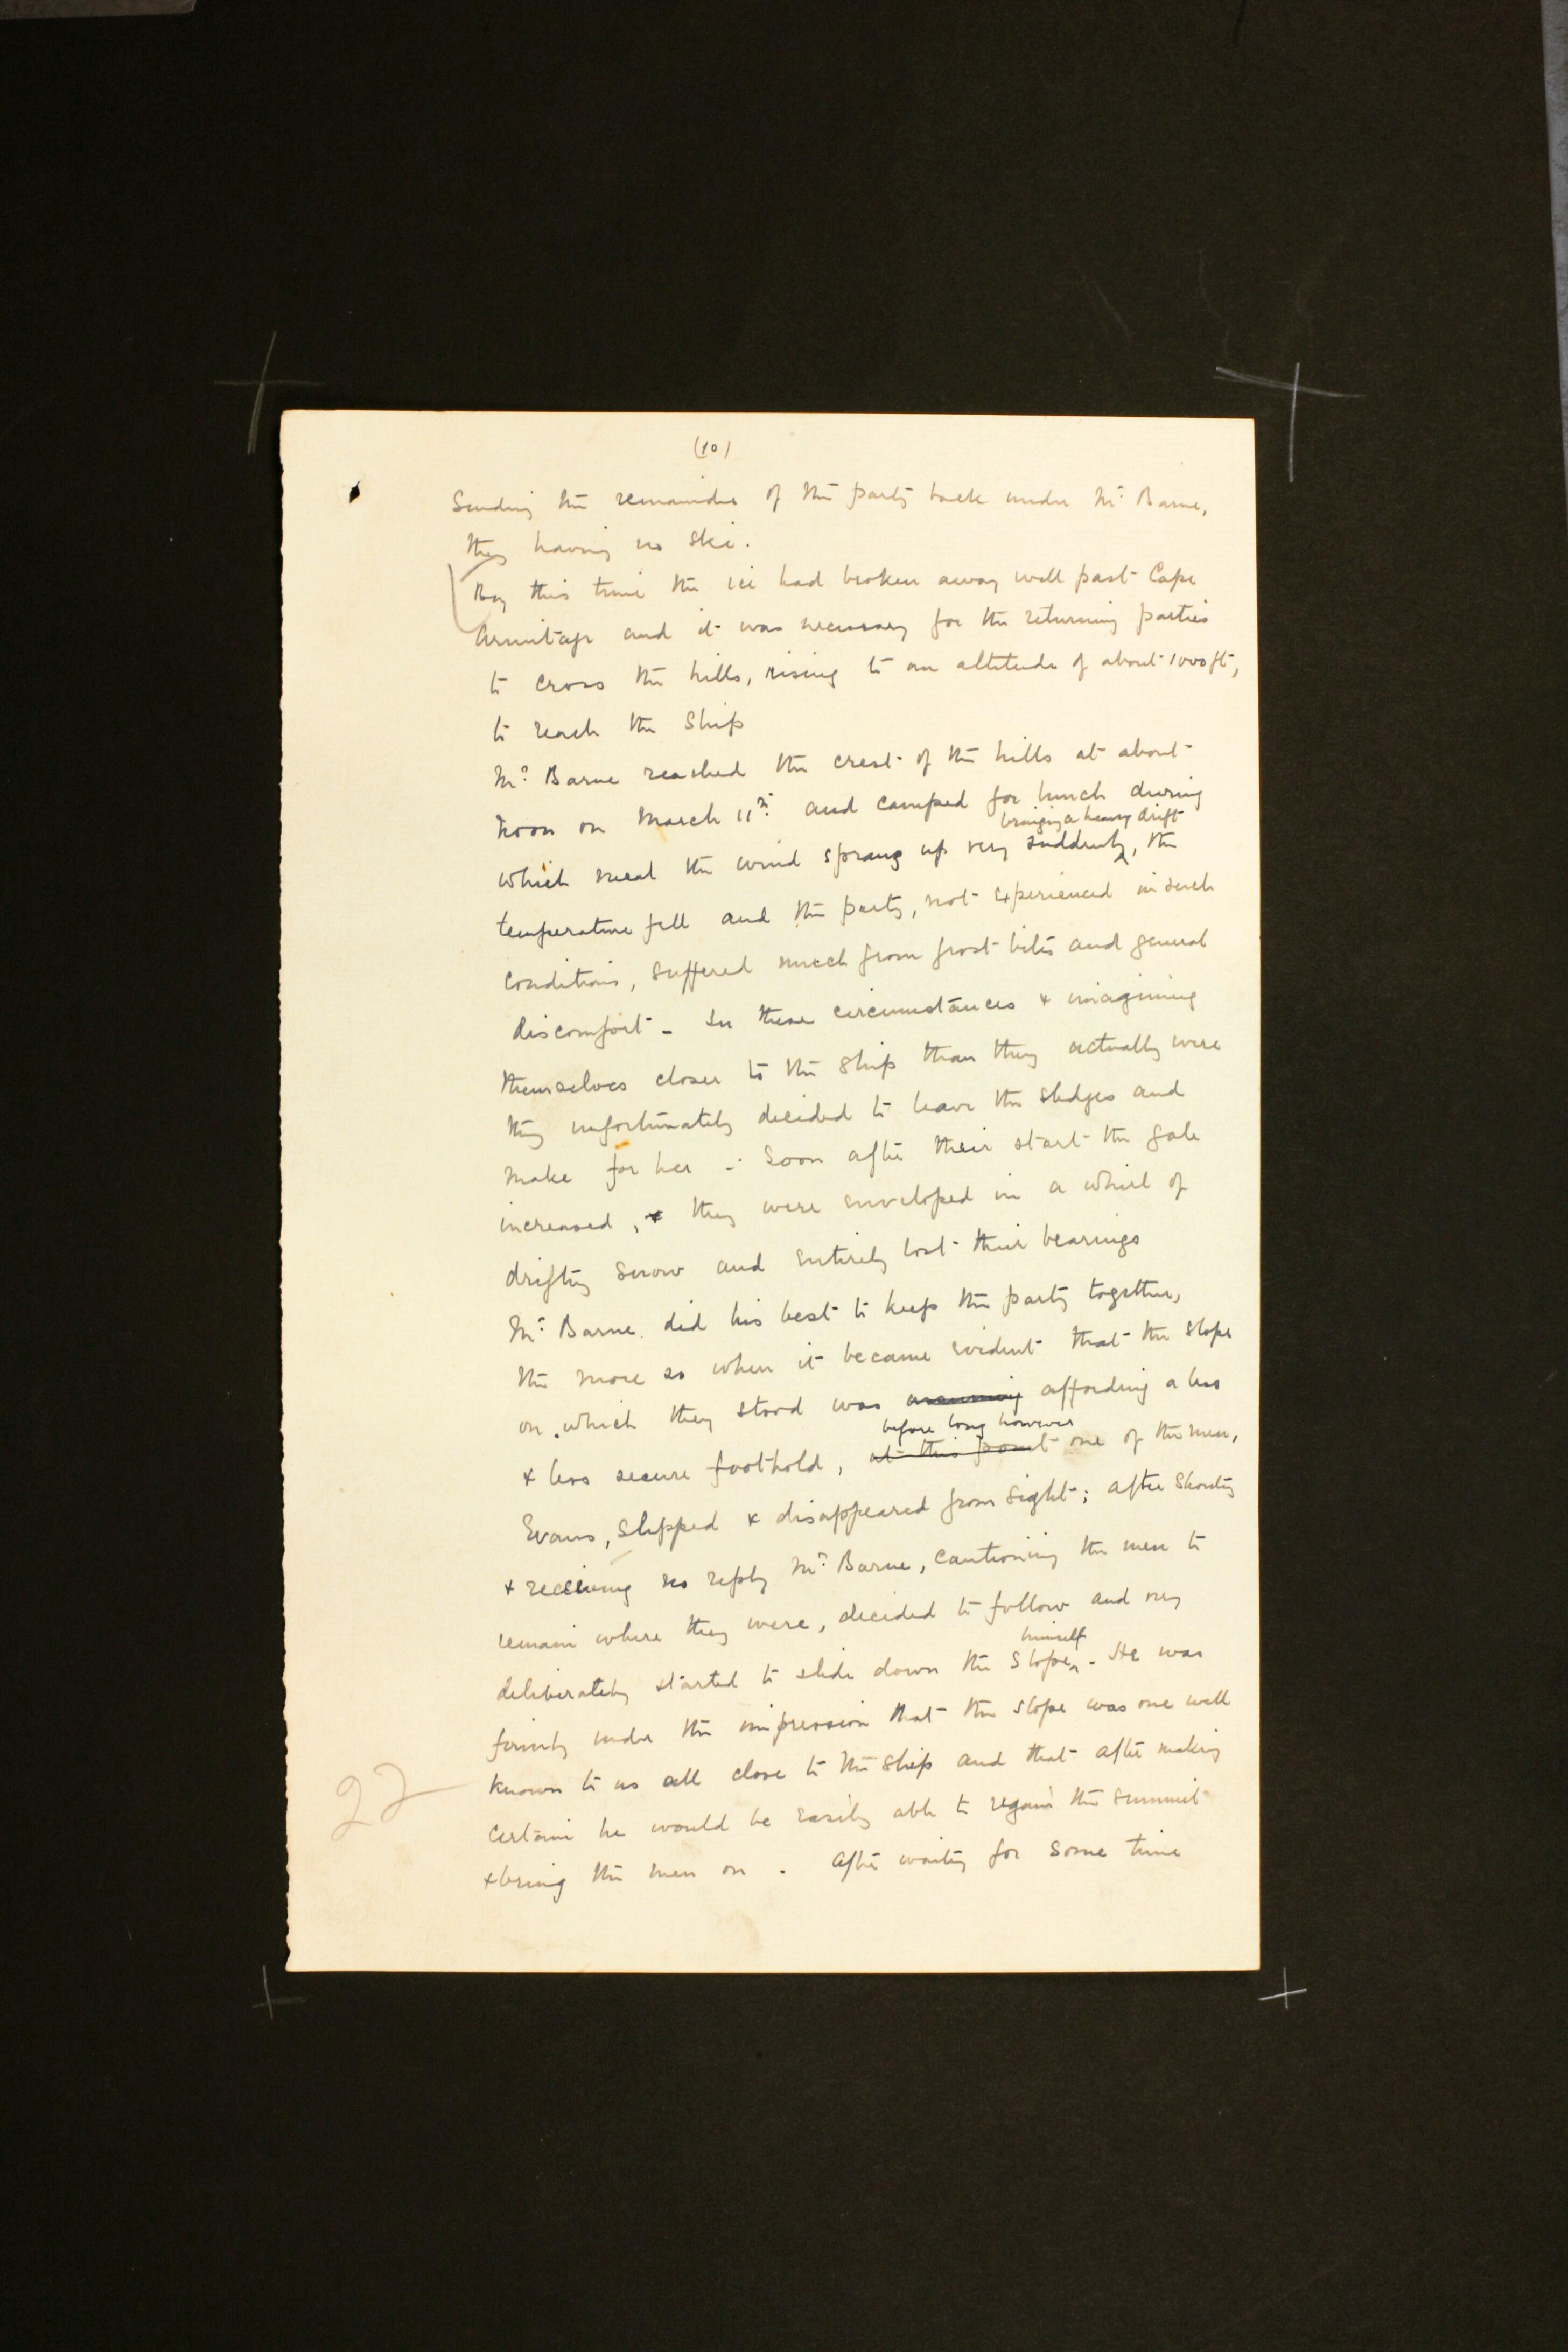 (10)
Sending the remainder of the party back under Mr Barne,
they having no ski.
By this time the ice had broken away well past Cape
Armitage and it was necessary for the returning parties
to cross the hills, rising to an altitude of about 1000 ft,
to reach the ship
Mr Barne reached the crest of the hills at about
noon on March 11th and camped for lunch during
bringing a heavy drift
which meal the wind sprang up very suddenly, the
temperature fell and the party, not experienced in such
conditions, suffered much from frost bites and general
discomfort - In these circumstances & imagining
themselves closer to the ship than they actually were
they unfortunately decided to leave the sledges and
make for her - Soon after their start the gale
increased, & they were enveloped in a whirl of
drifting snow and entirely lost their bearings
Mr Barne did his best to keep the party together,
the more so when it became evident that the slope
on which they stood was affording a less
before long however
& less secure foothold, at this point one of the men,
Evans, slipped & disappeared from sight; after shouting
& receiving no reply Mr Barne, cautioning the men to
remain where they were, decided to follow and very
himself
deliberately started to slide down the slope - He was
firmly under the impression that the slope was one well
known to us all close to the ship and that after making
certain he would be easily able to regain the summit
& bring the men on . After waiting for some time
22